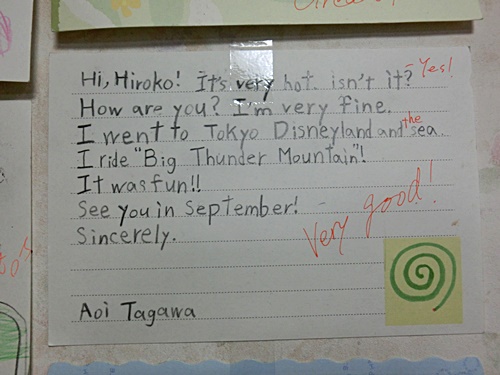 Hi, Hiroko! It's very hot. isn't it? Yes!
How are you? I'm very fine.
I went to Tokyo Disneyland and the sea.
I ride "Big Thunder Mountain"!
It was fun!!
See you in September!
Sincerely.
Very good!
Aoi Tagawa